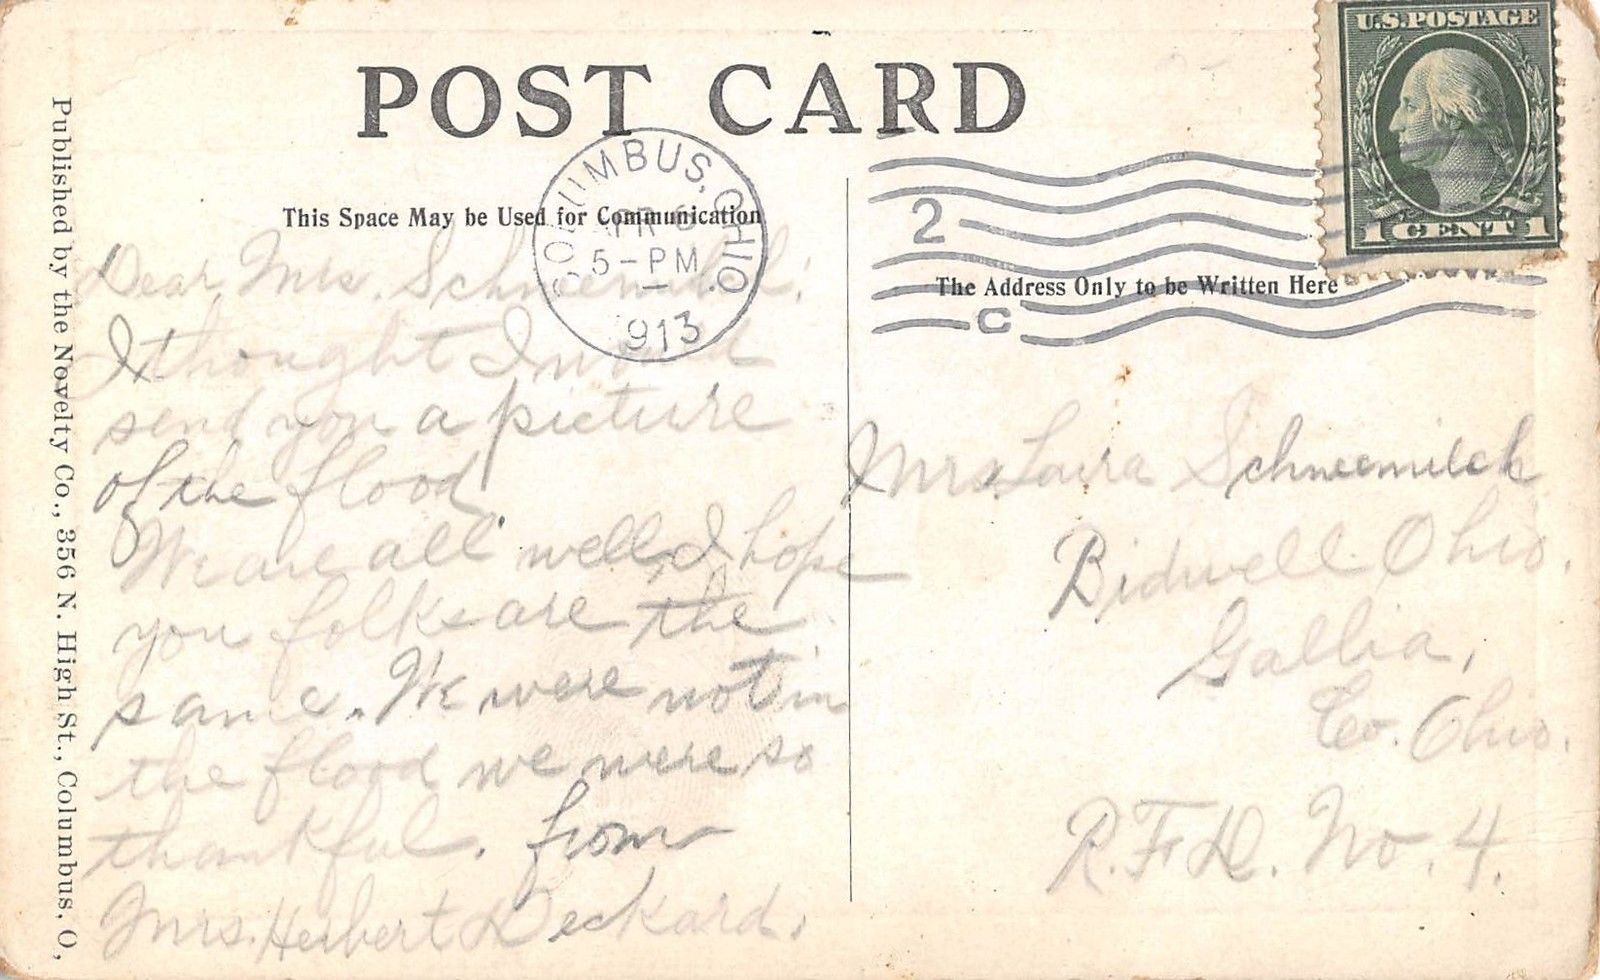 POST CARD
U.S.POSTAGE
1 CENT 1
COLUMBUS, OHIO
APR
5-PM
1913
2
C
This Space May be Used for Communication
The Address Only to be Written Here
Published by the Novelty Co., 356 N. High St., Columbus, O,
Dear Mrs. Schneemilch:
I thought I would
send you a picture
of the flood.
We are all well, I hope
you folks are the
same. We were not in
the flood we were so
thankful. from
Mrs. Herbert Deckard.
Mrs. Laura Schneemilch
Bidwell Ohio.
Gallia,
Co. Ohio.
R. F. D. No. 4.